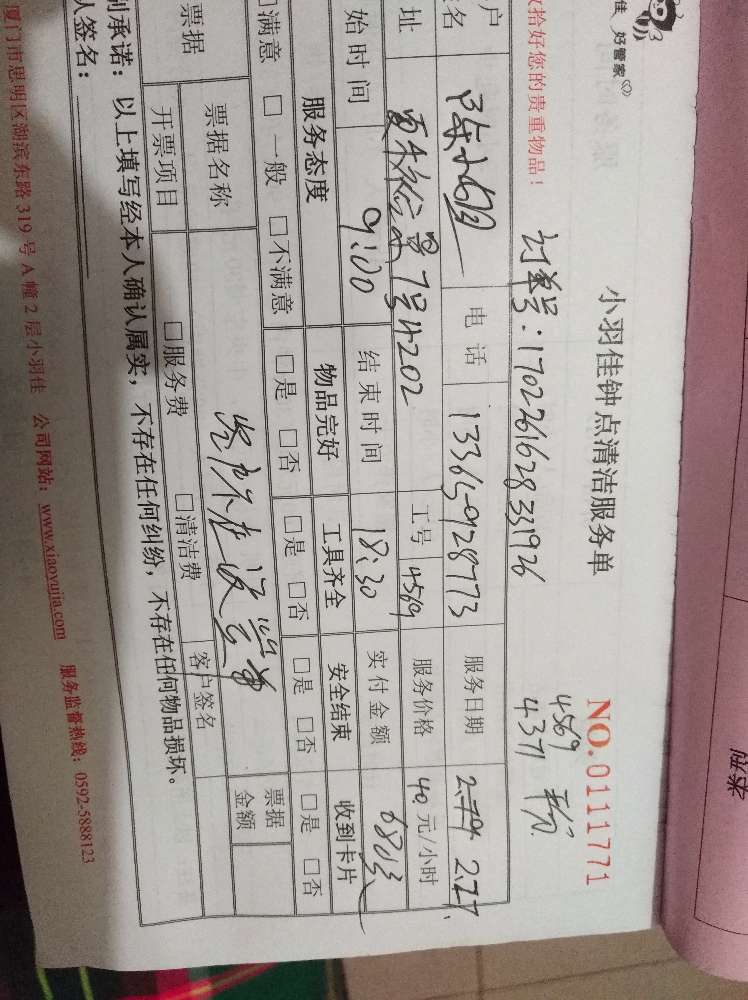 佳 好管家
收拾好您的贵重物品！
小羽佳钟点清洁服务单
NO.0111771
订单号：1702261628331926
4569
4371
户 电话 13365928773 服务日期 2.27.
址 7号4202 工号 4569 服务价格 40 元/小时
始时间 9:00 结束时间 18:30 实付金额 680
服务态度 物品完好 工具齐全 安全结束 收到卡片
□满意 □一般 □不满意 □是 □否 □是 □否 □是 □否 □是 □否
票据 票据名称 客户签名 票据金额
开票项目 □服务费 □清洁费
别承诺：以上填写经本人确认属实，不存在任何纠纷，不存在任何物品损坏。
人签名：
厦门市思明区湖滨东路 319 号 A 幢 2 层小羽佳 公司网站：www.xiaoyujia.com 服务监督热线：0592-5888123